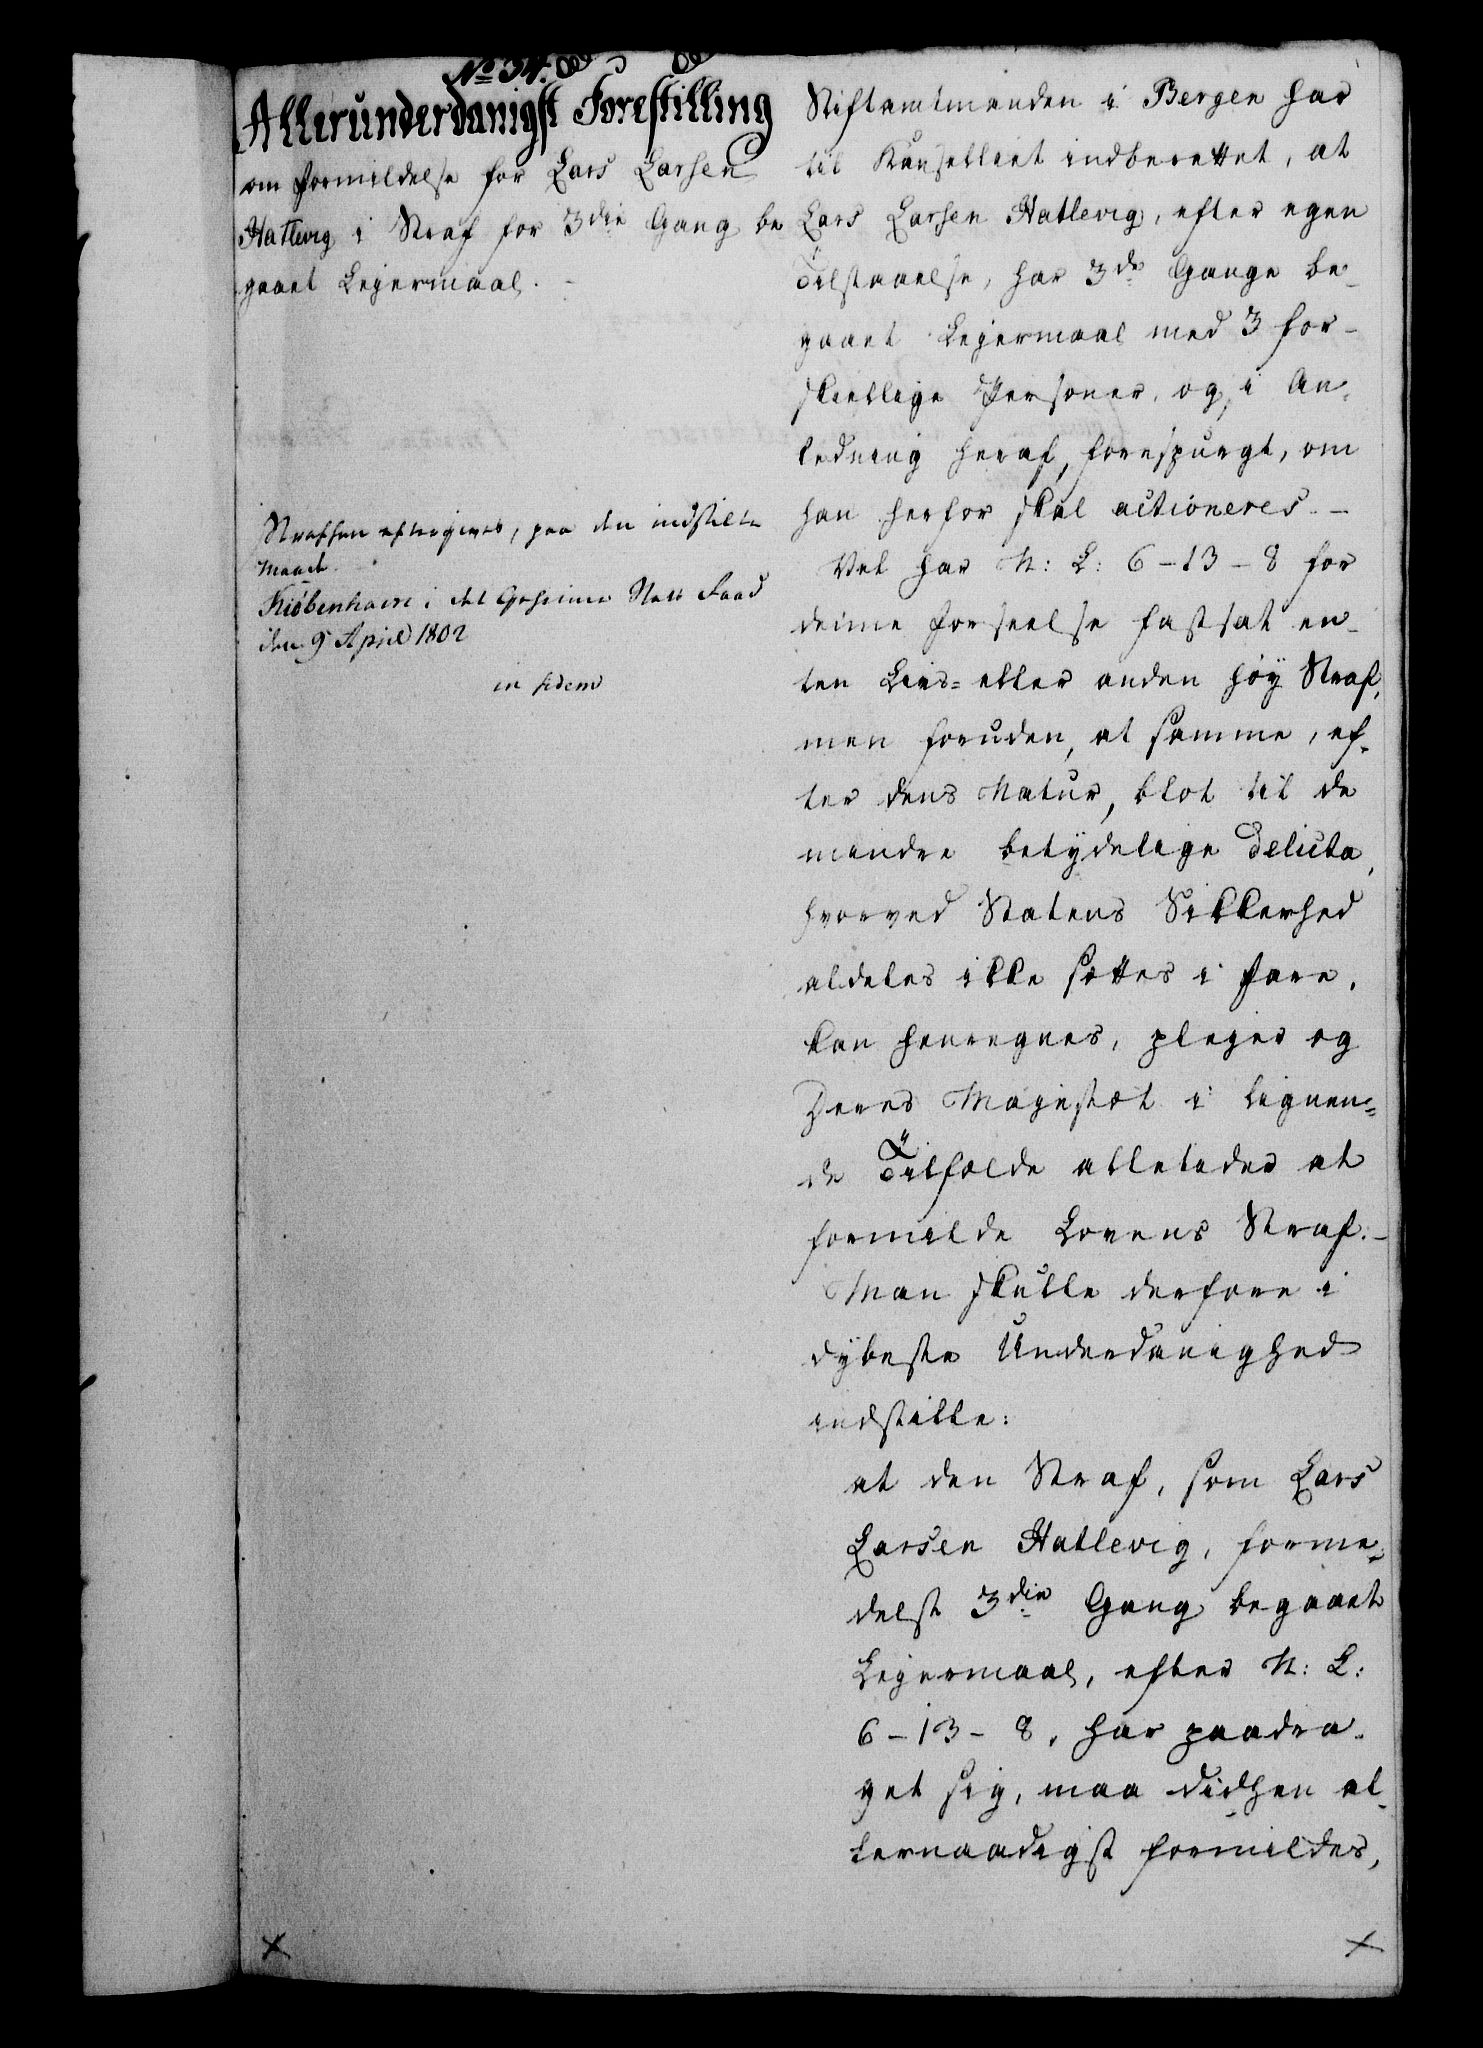 No 34.
Allerunderdanigst Forestilling
om Formildelse for Lars Larsen
Hatlevig i Straf for 3die Gang be
gaaet Lejermaal. -
Straffen eftergives, paa den indstilte
Maade.
Kiöbenhavn i det Geheime Stats Raad
den 9 April 1802
in fidem
Stiftamtmanden i Bergen har
til Kanselliet indberettet, at
Lars Larsen Hatlevig, efter egen
Tilstaaelse, har 3de Gange be-
gaaet Lejermaal med 3 for-
skiellige Personer, og, i An-
ledning heraf, forespurgt, om
han herfor skal actioneres. -
Vel har N: L: 6-13-8 for
denne Forseelse fastsat en-
ten Livs- eller anden høy Straf,
men foruden, at samme, ef-
ter dens Natur, blot til de
mindre betydelige Delicta,
hvorved Statens Sikkerhed
aldeles ikke sættes i Fare,
kan henregnes, plejer og
Deres Majestæt i lignen-
de Tilfælde alletider at
formilde Lovens Straf. -
Man skulle derfore i
dybeste Underdanighed
indstille:
at den Straf, som Lars
Larsen Hatlevig, forme-
delst 3die Gang begaaet
Lejermaal, efter N: L:
6-13-8, har paadra-
get sig, maa vidhen al-
lernaadigst formildes,